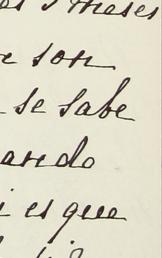 s meses
e son
se sabe
ando
i es que